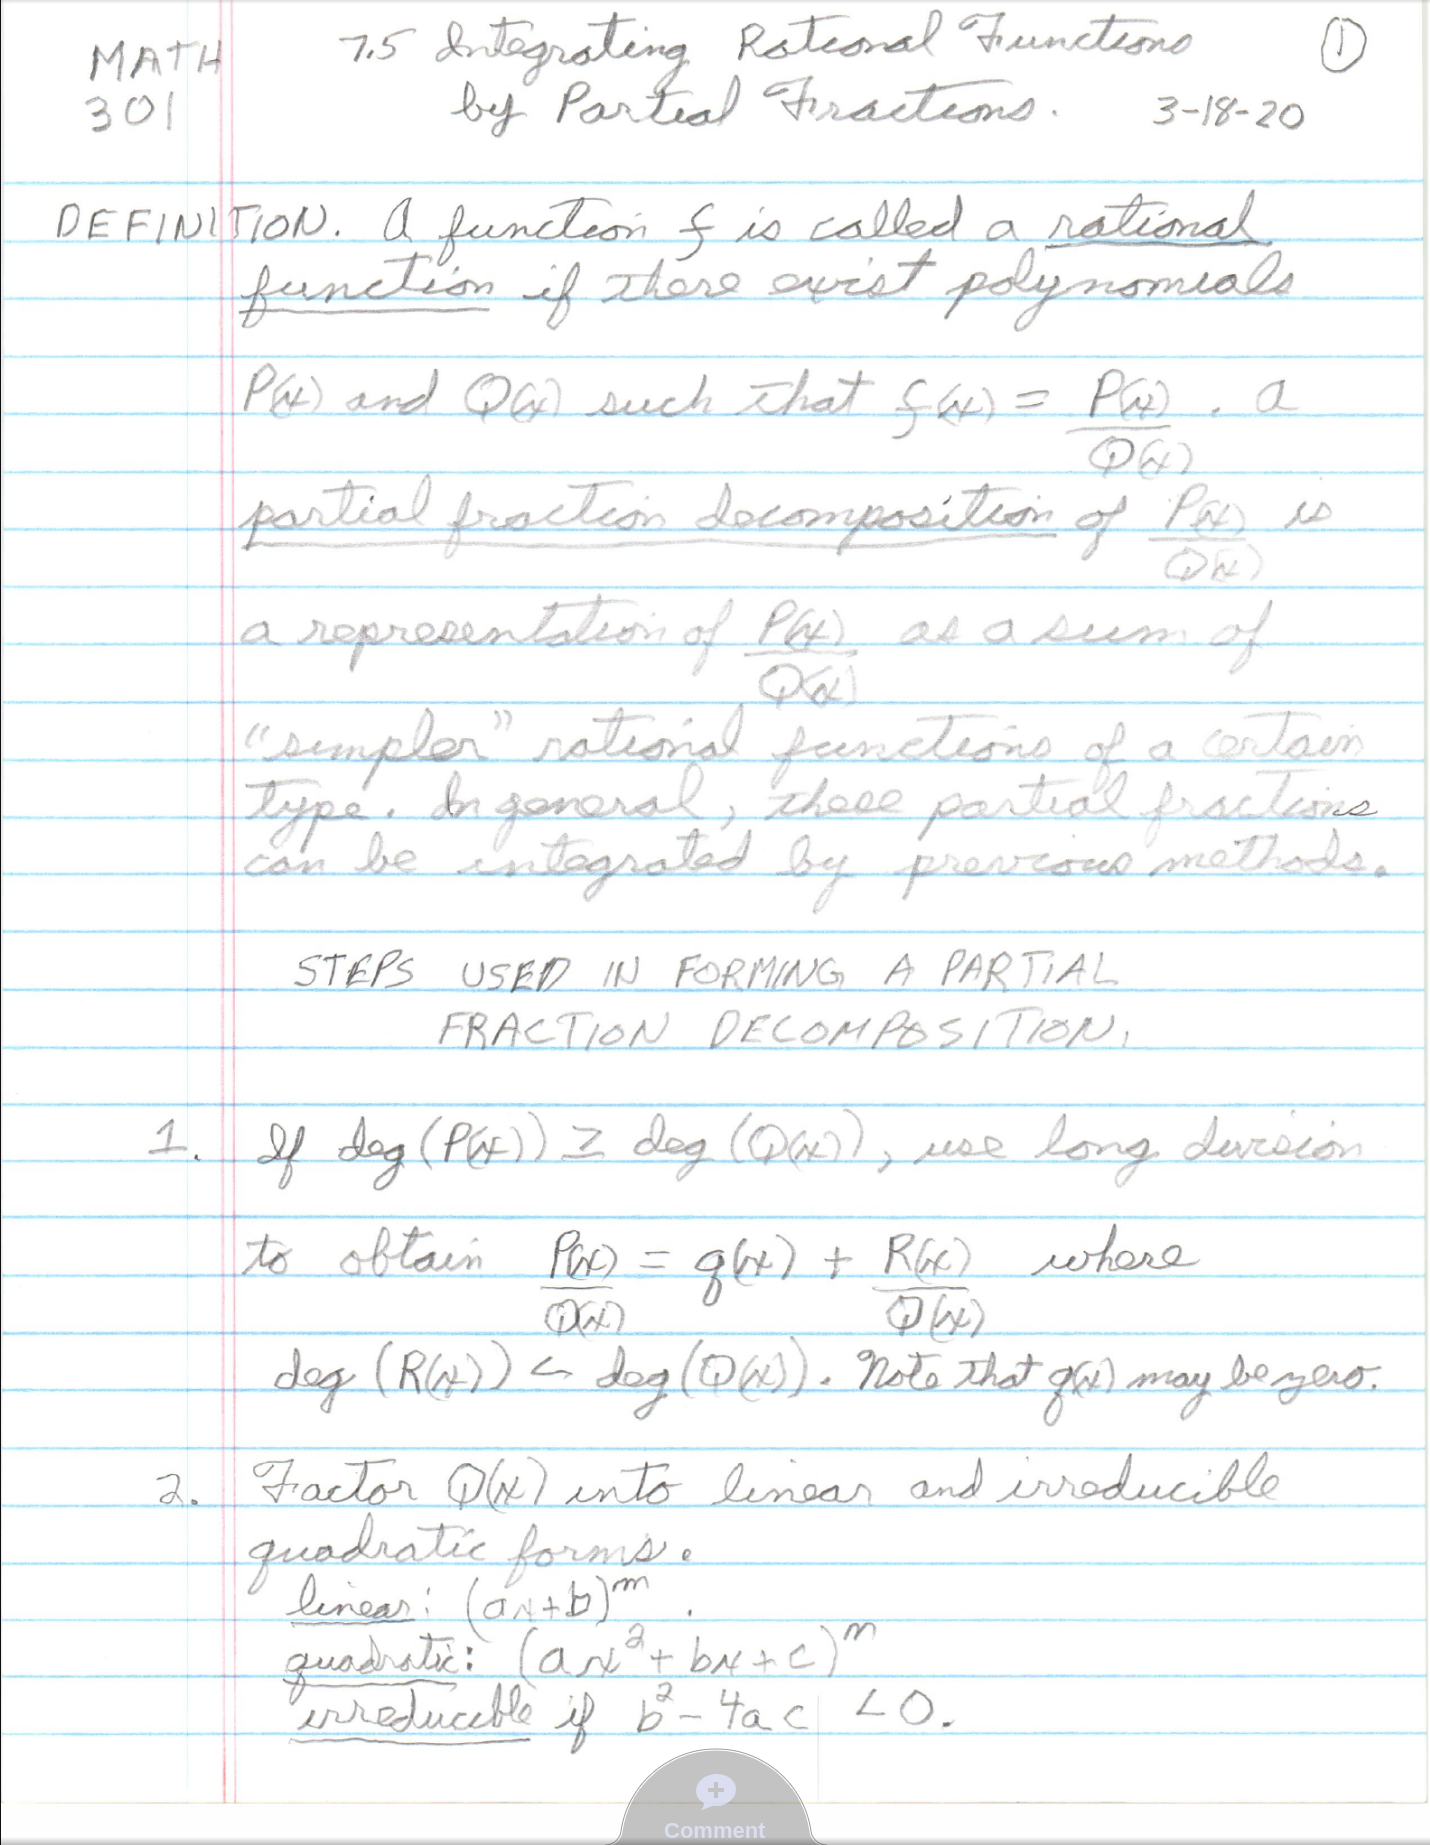 MATH 301
7.5 Integrating Rational Functions
by Partial Fractions.
①
3-18-20
DEFINITION. A function f is called a rational
function if there exist polynomials
P(x) and Q(x) such that f(x) = P(x)/Q(x). A
partial fraction decomposition of P(x)/Q(x) is
a representation of P(x)/Q(x) as a sum of
"simpler" rational functions of a certain
type. In general, these partial fractions
can be integrated by previous methods.
STEPS USED IN FORMING A PARTIAL
FRACTION DECOMPOSITION.
1. If deg(P(x)) ≥ deg(Q(x)), use long division
to obtain P(x)/Q(x) = q(x) + R(x)/Q(x) where
deg(R(x)) < deg(Q(x)). Note that q(x) may be zero.
2. Factor Q(x) into linear and irreducible
quadratic forms.
linear: (ax+b)^m.
quadratic: (ax²+bx+c)^n
irreducible if b²-4ac <0.
Comment